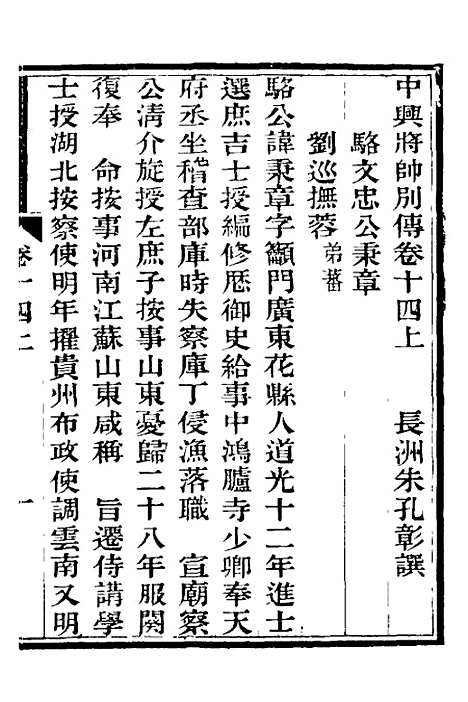 中興將帥別傳卷十四上　長洲朱孔彰譔
駱文忠公秉章
劉巡撫蓉 弟蕃
駱公諱秉章字籲門廣東花縣人道光十二年進士
選庶吉士授編修歷御史給事中鴻臚寺少卿奉天
府丞坐稽查部庫時失察庫丁侵漁落職　宣廟察
公淸介旋授左庶子按事山東憂歸二十八年服闋
復奉　命按事河南江蘇山東咸稱　旨遷侍講學
士授湖北按察使明年擢貴州布政使調雲南又明
卷十四上
一